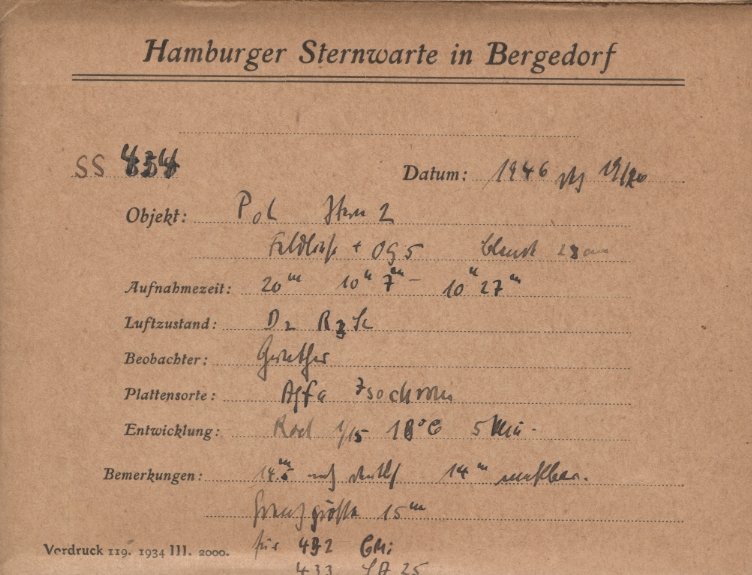 Hamburger Sternwarte in Bergedorf
SS 434
Datum: 1946 19/20
Objekt: Pol Stern 2
+ OG5
Aufnahmezeit: 20m 10h 7m – 10h 27m
Luftzustand: D2 R3
Beobachter:
Plattensorte: Agfa Isochrom
Entwicklung: Rod 1/15 18°C 5 Min.
Bemerkungen: 14.5m 14m
Grenzgröße 15m
für 432
Vordruck 119. 1934 III. 2000.
433 SA 25